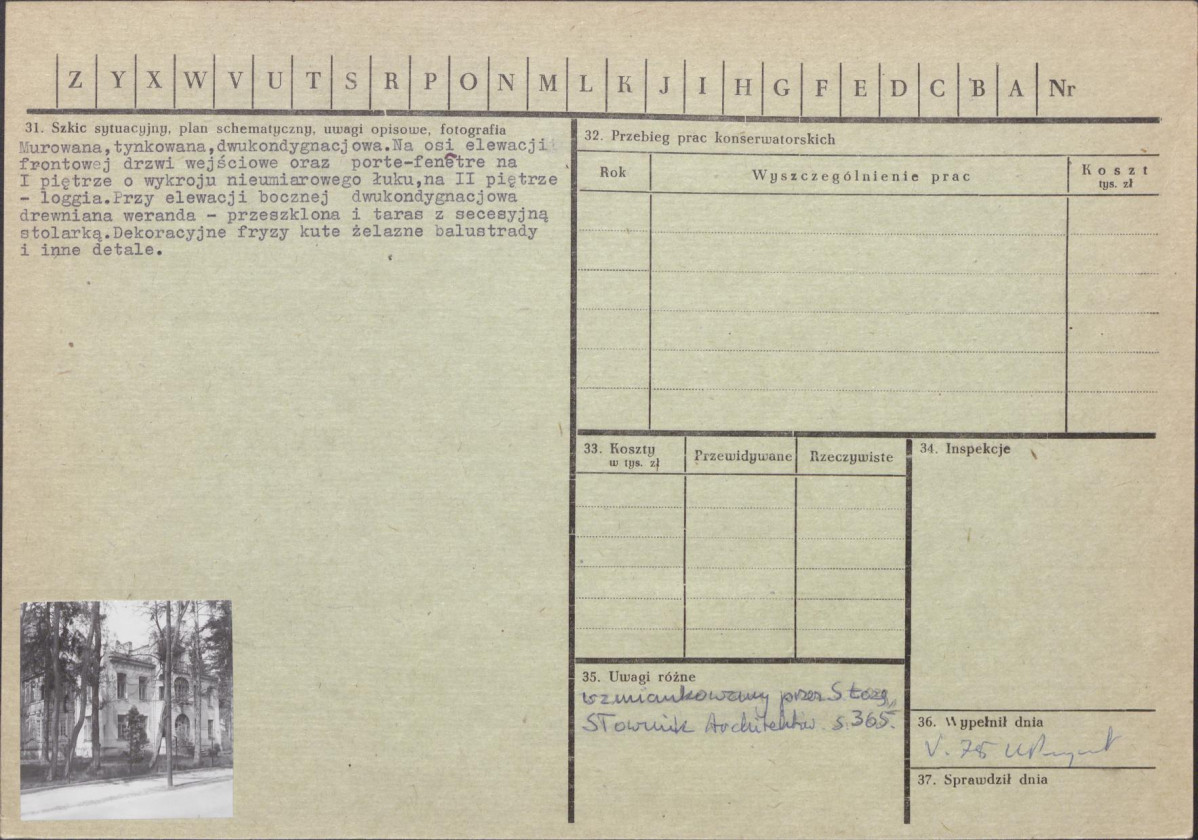 Z Y X W V U T S R P O N M L K J I H G F E D C B A Nr
31. Szkic sytuacyjny, plan schematyczny, uwagi opisowe, fotografia
Murowana,tynkowana,dwukondygnacjowa.Na osi elewacji
frontowej drzwi wejściowe oraz porte-fenêtre na
I piętrze o wykroju nieumiarowego łuku,na II piętrze
- loggia.Przy elewacji bocznej dwukondygnacjowa
drewniana weranda - przeszklona i taras z secesyjną
stolarką.Dekoracyjne fryzy kute żelazne balustrady
i inne detale.
32. Przebieg prac konserwatorskich
Rok
Wyszczególnienie prac
Koszt
tys. zł
33. Koszty
w tys. zł
Przewidywane
Rzeczywiste
34. Inspekcje
35. Uwagi różne
wzmiankowany przez S
Słownik Architektów s. 365.
36. Wypełnił dnia
V. 78
37. Sprawdził dnia